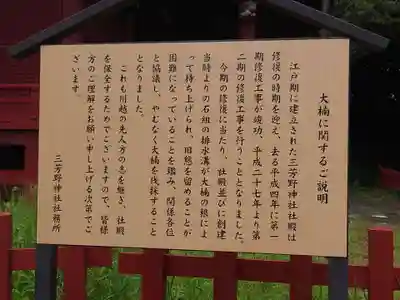 大楠に関するご説明
江戸期に建立された三芳野神社社殿は
修復の時期を迎え、去る平成四年に第一
期修復工事が竣功、平成二十七年より第
二期の修復工事を行うこととなりました。
今期の修復に当たり、社殿並びに創建
当時よりの石組の排水溝が大楠の根によ
って持ち上げられ、旧態を留めることが
困難になっていることを鑑み、関係各位
と協議し、やむなく大楠を伐採すること
となりました。
これも川越の先人方の意を継ぎ、社殿
を保全するためでございますので、皆様
方のご理解をお願い申し上げる次第でご
ざいます。
三芳野神社社務所